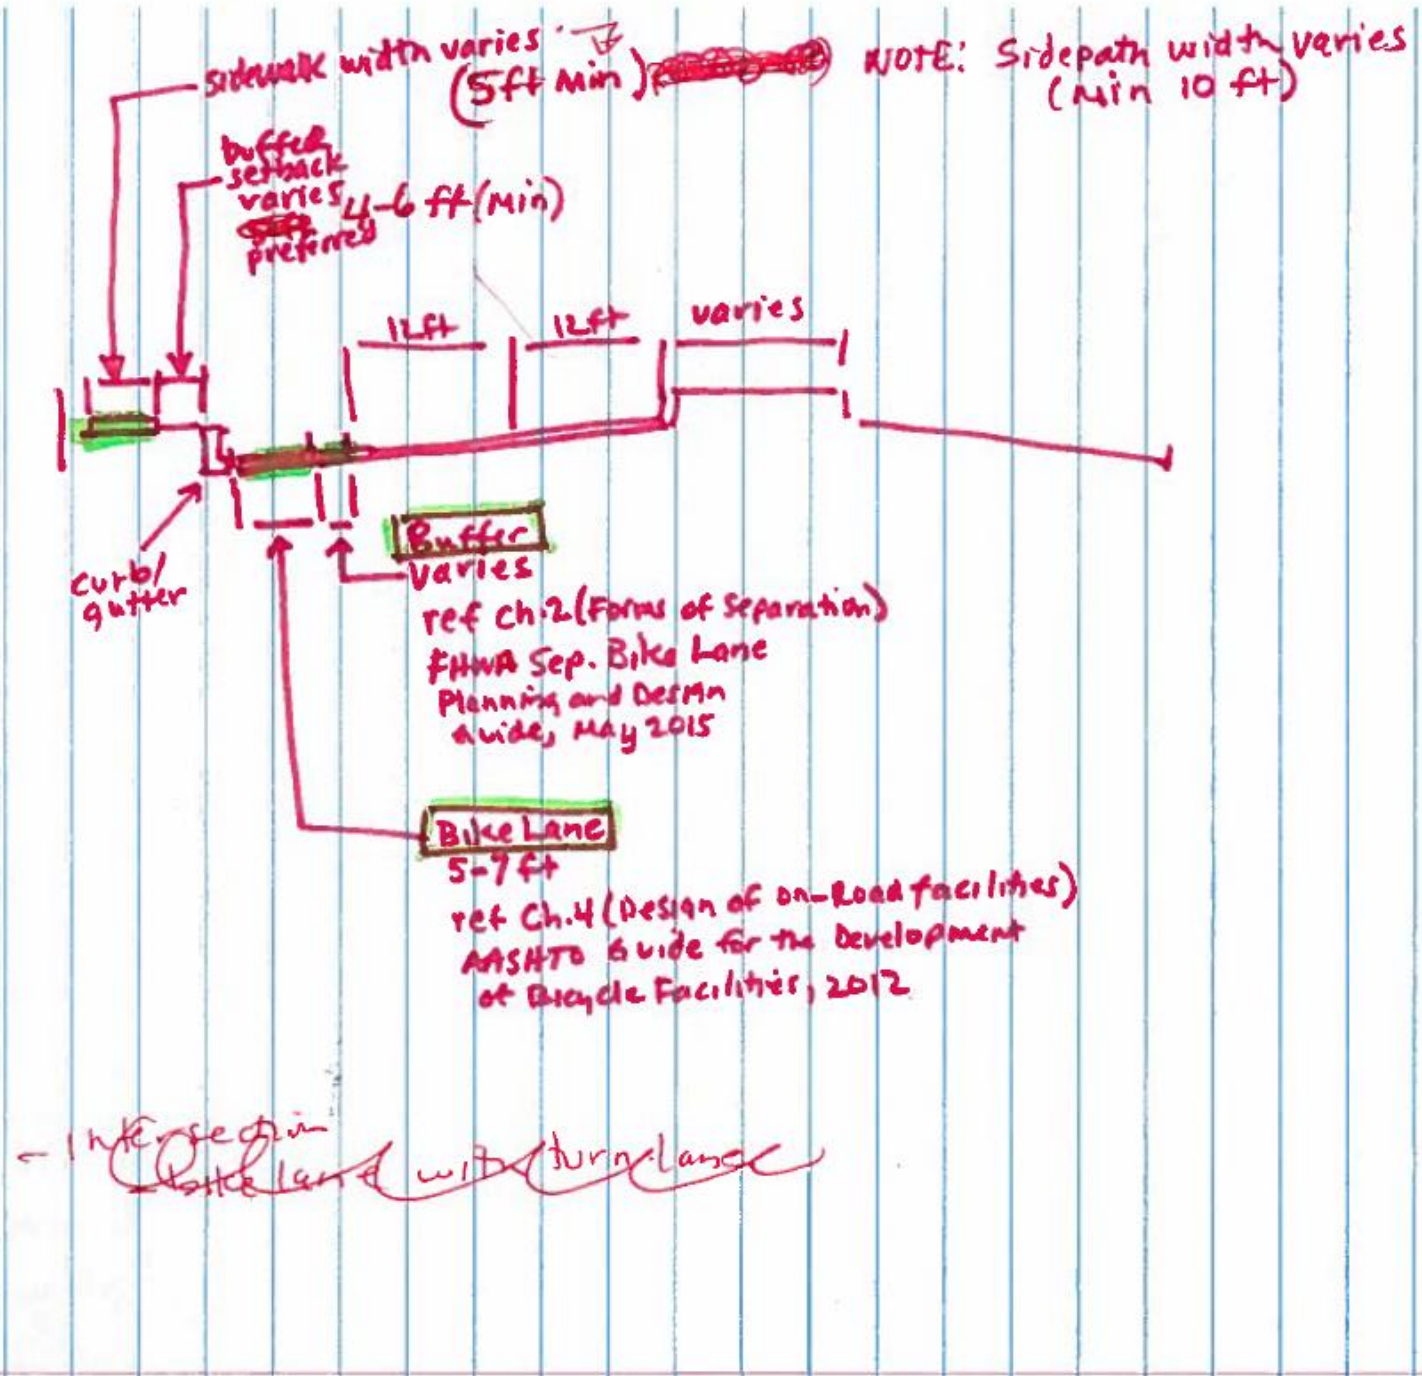 sidewalk width varies
(5ft Min)
NOTE: Sidepath width varies
(Min 10 ft)
buffer
setback
varies 4-6 ft (Min)
preferred
12ft
12ft
varies
curb/
gutter
Buffer
Varies
ref ch.2 (Forms of Separation)
FHWA Sep. Bike Lane
Planning and Design
Guide, May 2015
Bike Lane
5-7 ft
ref Ch.4 (Design of on-Road facilities)
AASHTO Guide for the Development
of Bicycle Facilities, 2012
- Intersection
- bike lane with turn lane